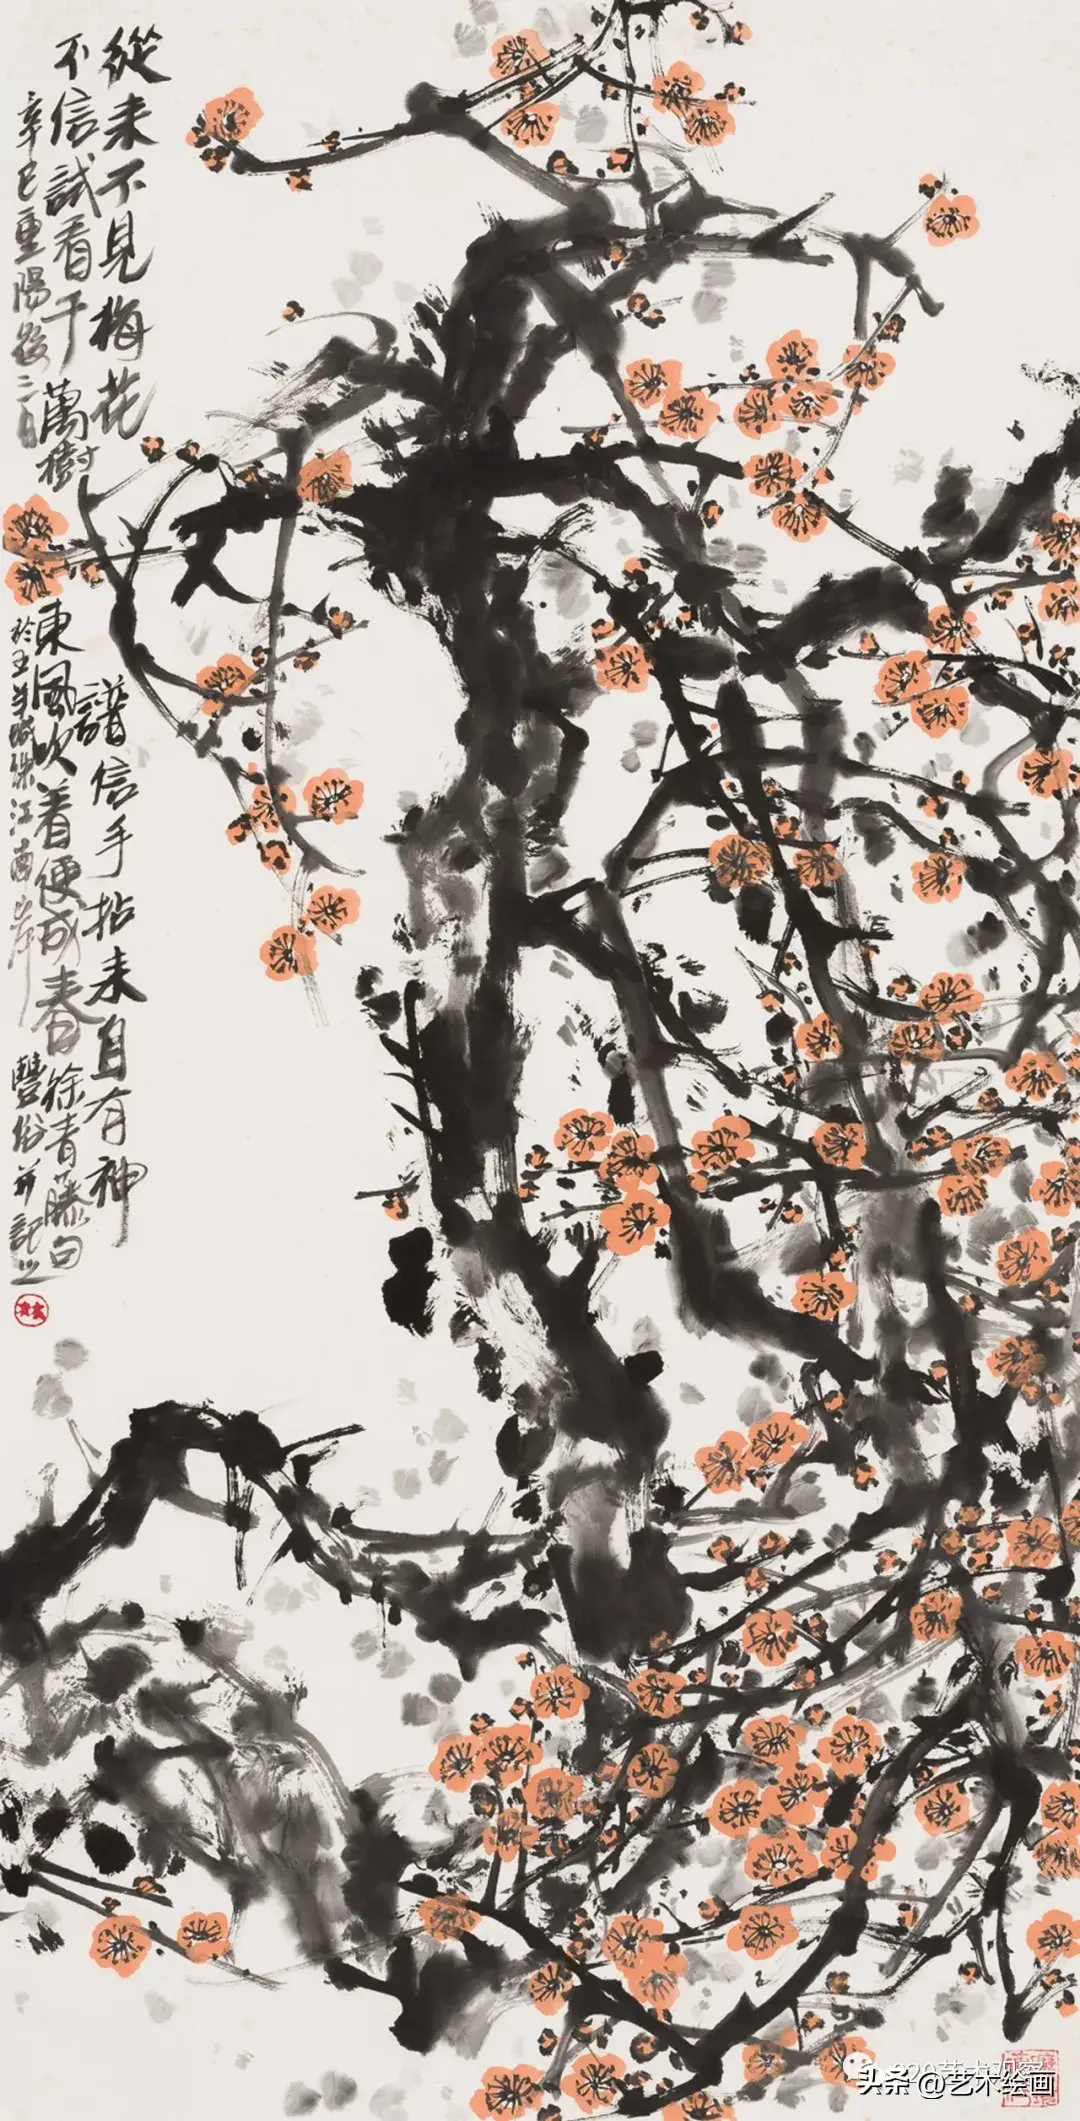 從来不見梅花譜信手拈来自有神
不信試看千萬樹東風吹着便成春徐青藤句
辛巳重陽後二日於五羊城珠江南岸豐俗并記之
头条 @艺术绘画